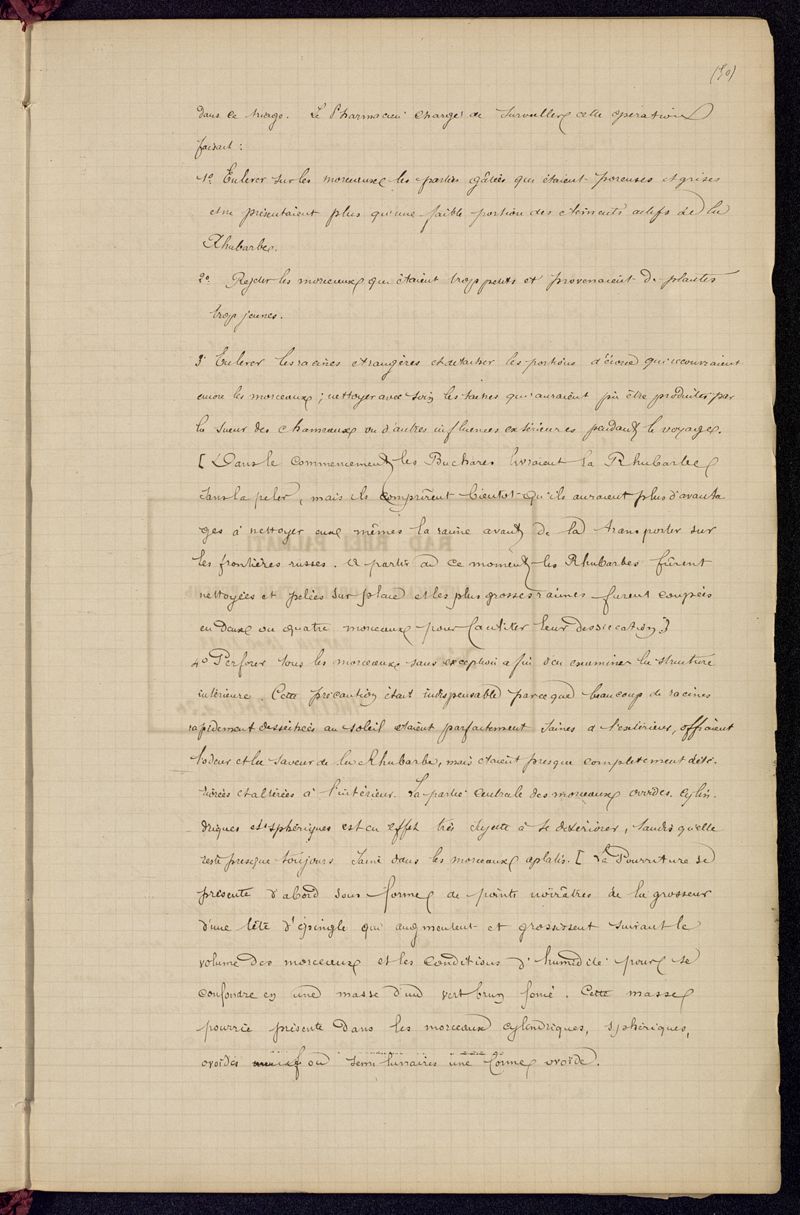 (50)
dans ce Le Pharmacien chargé de surveiller cette opération
faisait :
1º Enlever sur les morceaux les parties gâtées qui étaient poreuses et grises
et ne présentaient plus qu'une faible portion des éléments actifs de la
Rhubarbe.
2º Rejeter les morceaux qui étaient trop petits et provenaient de plantes
trop jeunes.
3º Enlever les racines étrangères et détacher les portions d'écorce qui recouvraient
encore les morceaux ; nettoyer avec soin les taches qui auraient pu être produites par
la sueur des chameaux ou d'autres influences extérieures pendant le voyage.
[ Dans le commencement les Buchares livraient la Rhubarbe
sans la peler, mais ils comprirent bientôt qu'ils auraient plus d'avanta
ges à nettoyer eux mêmes la racine avant de la transporter sur
les frontières russes. A partir de ce moment les Rhubarbes fûrent
nettoyées et pelées sur place et les plus grosses racines furent coupées
en deux ou quatre morceaux pour faciliter leur dessiccation ]
4º Perforer tous les morceaux sans exception afin d'en examiner la structure
intérieure. Cette précaution était indispensable parceque beaucoup de racines
rapidement dessèchées au soleil étaient parfaitement saines à l'extérieur, offraient
l'odeur et la saveur de la Rhubarbe, mais étaient presque complètement dété-
riorées et altérées à l'intérieur. La partie centrale des morceaux ovoïdes, cylin-
driques et sphériques est en effet très sujette à se détériorer, tandis qu'elle
reste presque toujours saine dans les morceaux aplatis. [ La Pourriture se
présente d'abord sous forme de points noirâtres de la grosseur
d'une tête d'épingle qui augmentent et grossissent suivant le
volume des morceaux et les conditions d'humidité pour se
confondre en une masse d'un vert brun foncé. Cette masse
pourrie présente dans les morceaux cylindriques, sphériques,
ovoïdes ou semi lunaires une forme ovoïde.